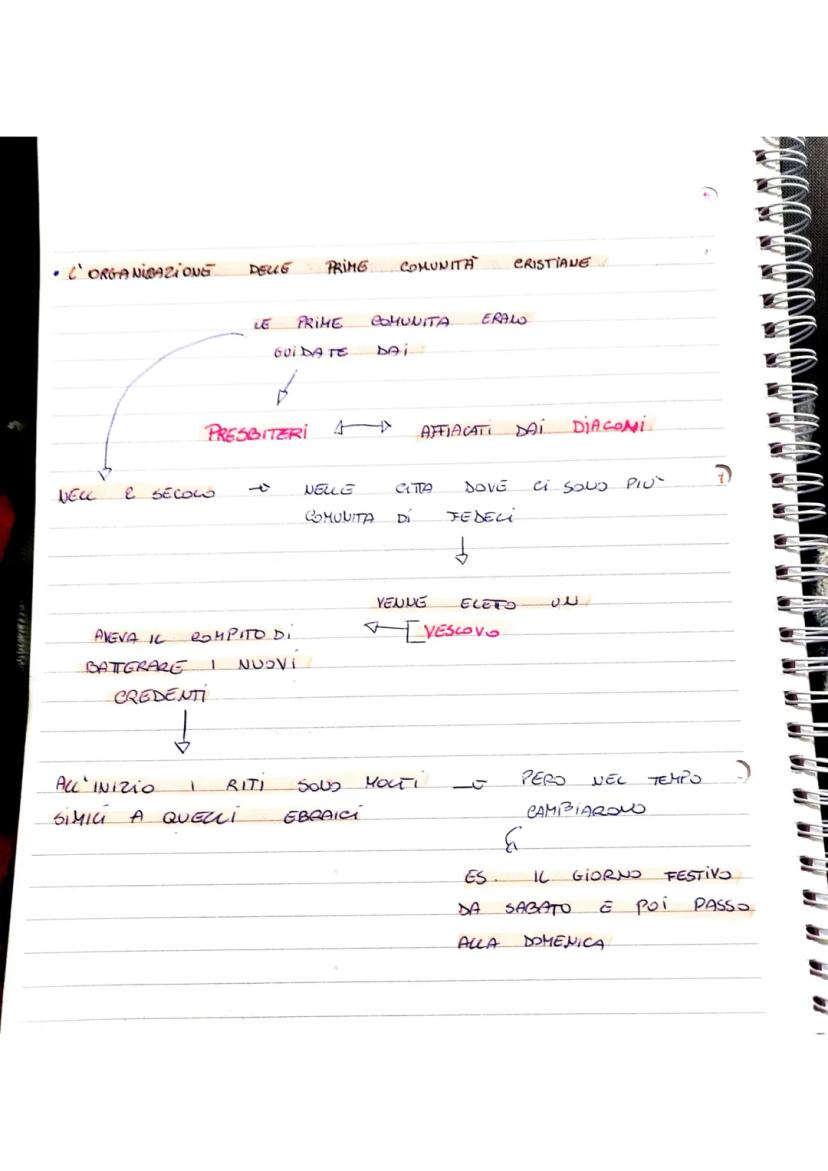 • L'ORGANIZAZIONE DELLE PRIME COMUNITÀ CRISTIANE
LE PRIME COMUNITA ERANO
GUIDATE DAI
PRESBITERI ↔ AFFIACATI DAI DIACONI
NELL 2 SECOLO → NELLE CITTA DOVE CI SONO PIU'
COMUNITA DI FEDELI
VENNE ELETO UN
VESCOVO
AVEVA IL COMPITO DI
BATTERARE I NUOVI
CREDENTI
ALL'INIZIO I RITI SONO MOLTI → PERO NEL TEMPO
SIMILI A QUELLI EBRAICI CAMBIARONO
ES. IL GIORNO FESTIVO
DA SABATO E POI PASSO
ALLA DOMENICA